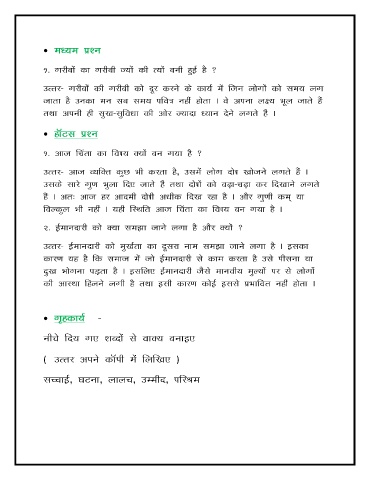 • मध्यम प्रश्न
१. गरीबों का गरीबी ज्यों की त्यों बनी हुई है ?
उत्तर- गरीबों की गरीबी को दूर करने के कार्य में जिन लोगों को समय लग
जाता है उनका मन सब समय पवित्र नहीं होता । वे अपना लक्ष्य भूल जाते हैं
तथा अपनी ही सुख-सुविधा की ओर ज्यादा ध्यान देने लगते हैं ।
• हॉटस प्रश्न
१. आज चिंता का विषय क्यों बन गया है ?
उत्तर- आज व्यक्ति कुछ भी करता है, उसमें लोग दोष खोजने लगते हैं ।
उसके सारे गुण भुला दिए जाते हैं तथा दोषों को बढ़ा-बढ़ा कर दिखाने लगते
हैं । अतः आज हर आदमी दोषी अधीक दिख रहा है । और गुणी कम् या
बिल्कुल भी नहीं । यही स्थिति आज चिंता का विषय बन गया है ।
२. ईमानदारी को क्या समझा जाने लगा है और क्यों ?
उत्तर- ईमानदारी को मुर्खता का दूसरा नाम समझा जाने लगा है । इसका
कारण यह है कि समाज में जो ईमानदारी से काम करता है उसे पीसना या
दुख भोगना पड़ता है । इसलिए ईमानदारी जैसे मानवीय मुल्यों पर से लोगों
की आस्था हिलने लगी है तथा इसी कारण कोई इससे प्रभावित नही होता ।
• गृहकार्य -
नीचे दिय गए शब्दों से वाक्य बनाइए
( उत्तर अपने कॉपी में लिखिए )
सच्चाई, घटना, लालच, उम्मीद, परिश्रम